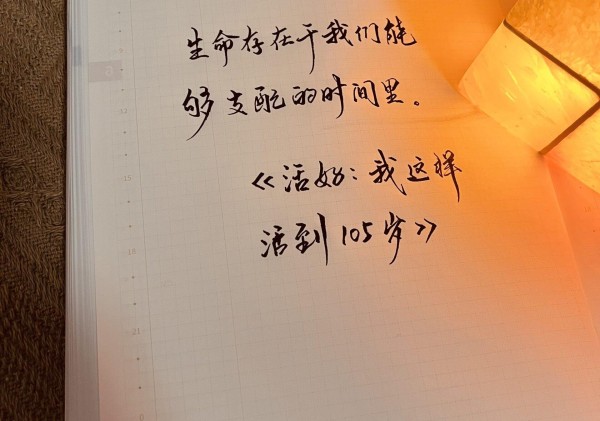 生命存在于我们能
够支配的时间里。
《活好：我这样
活到105岁》